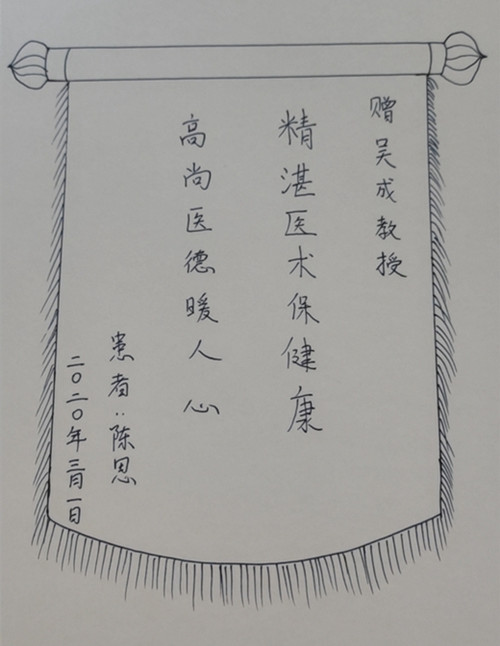 赠吴成教授
精湛医术保健康
高尚医德暖人心
患者:陈恩
二〇二〇年三月一日